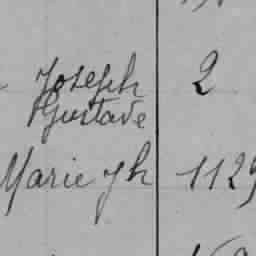 Joseph 2
Gustave
Marie Jh 1129